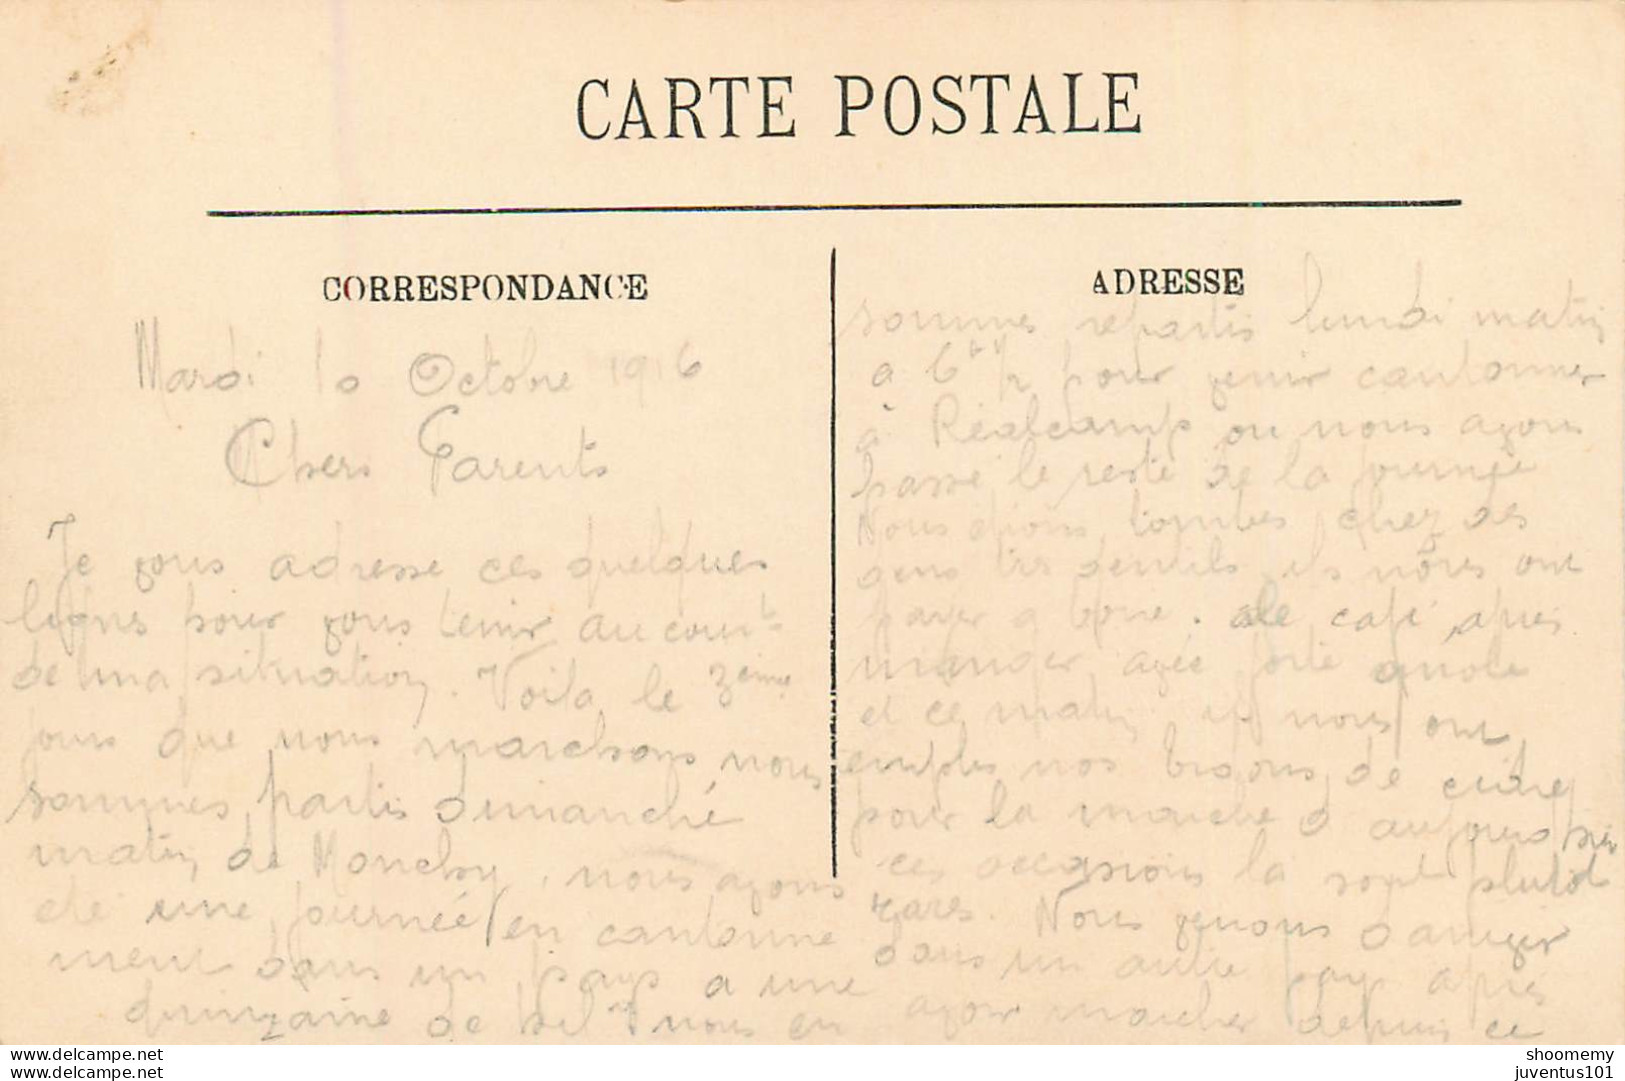 CARTE POSTALE
CORRESPONDANCE
Mardi 10 Octobre 1916
Chers Parents
Je vous adresse ces quelques
lignes pour vous tenir au cour
de ma situation. Voila le 3eme
jours que nous marchons nous
sommes partis dimanche
matin de Monchy, nous avons
été une journée en cantonne
ment dans un pays a une
quinzaine de kil nous en
ADRESSE
sommes repartis lundi matin
a 6 h pour venir cantonner
à Réalcamp ou nous avons
passé le reste de la journée
Nous étions tombés chez des
gens tres gentils ils nous ont
payer a boire. le café apres
manger avec forte gnole
et ce matin ils nous ont
emplis nos bidons de cidre
pour la marche d aujourd hui
ces occasions la sont plutot
rares. Nous venons d arriver
dans un autre pays apres
avoir marcher depuis ce
www.delcampe.net
www.delcampe.net
shoomemy
juventus101